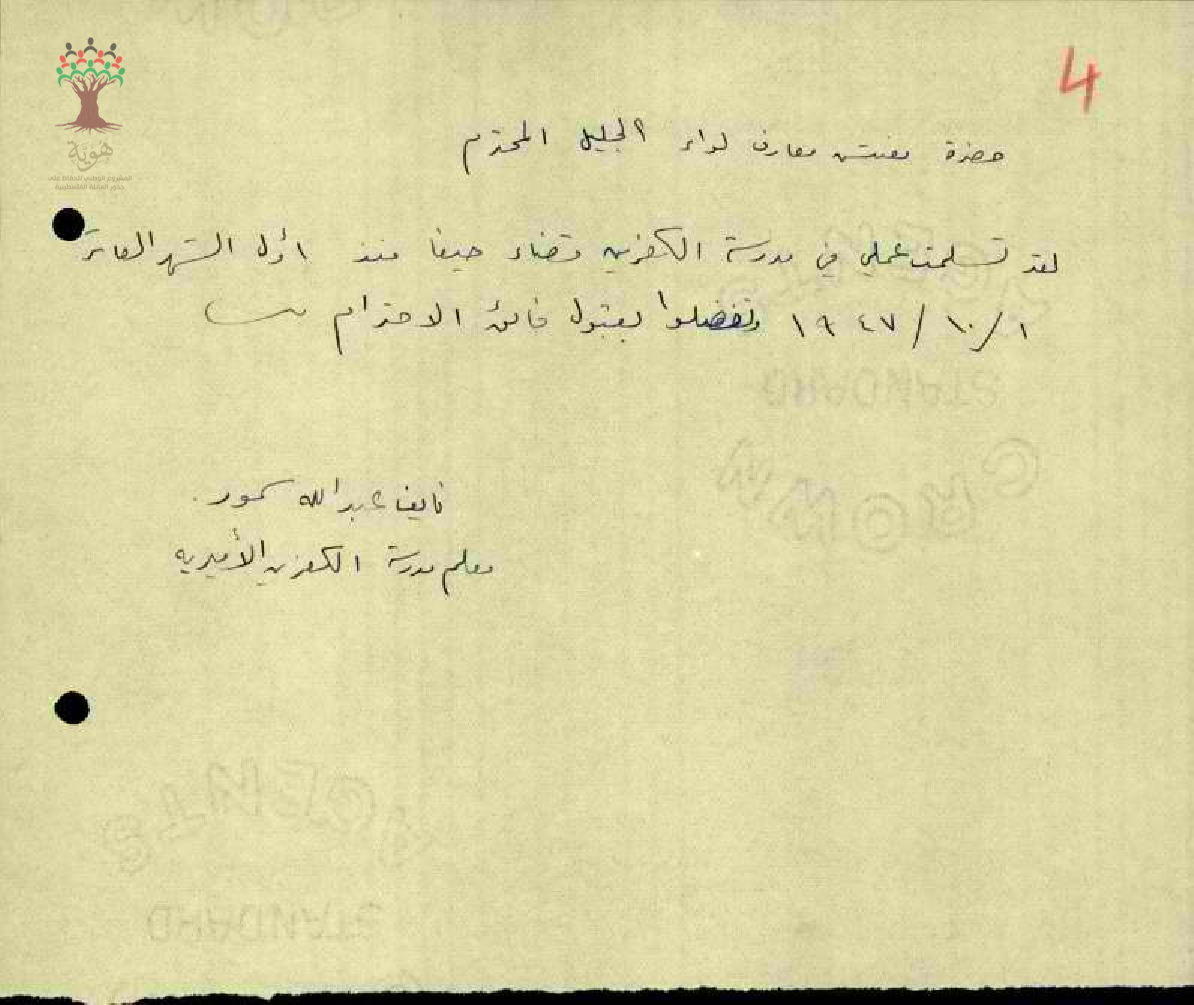 هوية
المشروع الوطني للحفاظ على
جذور العائلة الفلسطينية
4
حضرة مفتش معارف لواء الجليل المحترم
لقد تسلمت عملي في مدرسة الكفرين قضاء حيفا منذ اول الشهر العاشر
١/١٠/١٩٤٧ وتفضلوا بقبول فائق الاحترام
نايف عبد الله سمور
معلم مدرسة الكفرين الأميرية
AGENTS
STANDARD
CROWN
AGENTS
STANDARD